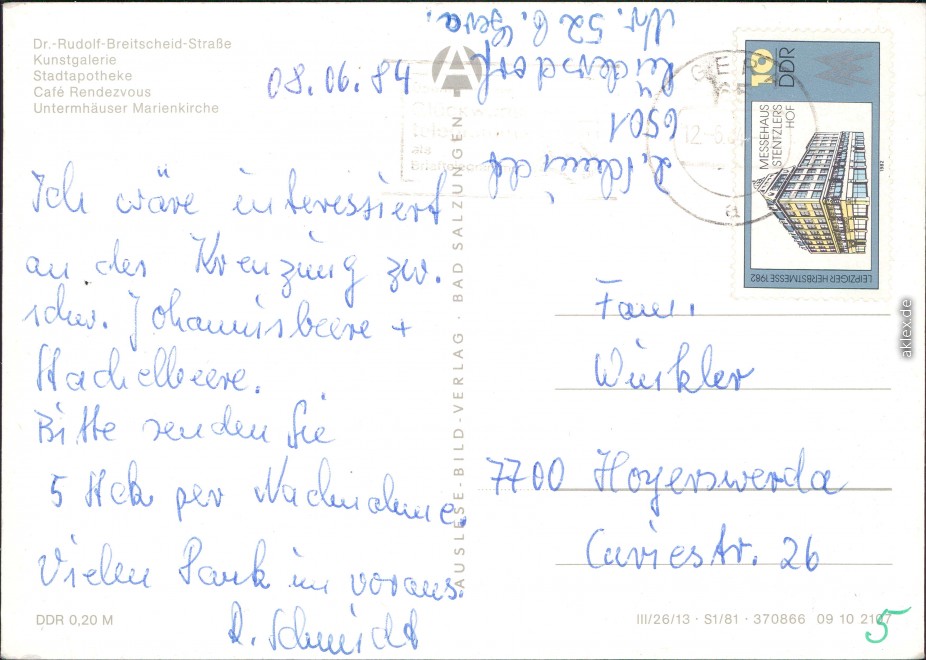 Dr.-Rudolf-Breitscheid-Straße
Kunstgalerie
Stadtapotheke
Café Rendezvous
Untermhäuser Marienkirche
08.06.84
Ich wäre interessiert
an der Kreuzung zw.
schw. Johannisbeere +
Stachelbeere.
Bitte senden Sie
5 Stck per Nachnahme.
Vielen Dank im voraus.
R. Schmidt
DDR 0,20 M
AUSLESE-BILD-VERLAG · BAD SALZUNGEN
Schmidt
6501
Rüdersdorf
Nr. 52 b. Gera.
GERA
12.-6.
a
10
DDR
MESSEHAUS
STENTZLERS
HOF
LEIPZIGER HERBSTMESSE 1982
1982
Fam.
Winkler
7700 Hoyerswerda
Curiestr. 26
III/26/13 · S1/81 · 370866 09 10 2107
5
aklex.de